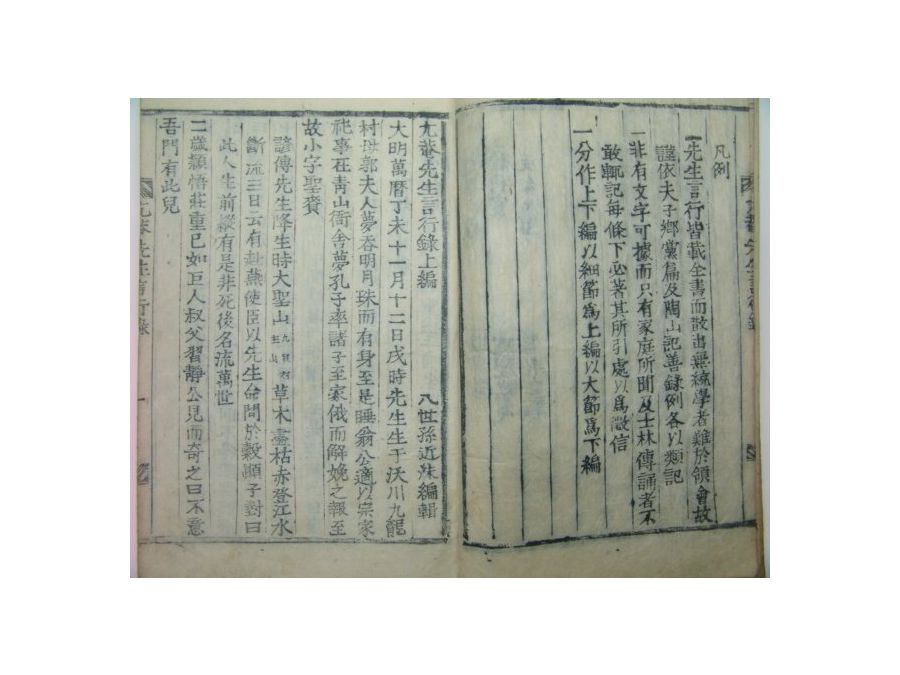 凡例
一先生言行皆載全書而散出無統學者難於領會故
謹依夫子鄉黨篇及陶山記善錄例各以類記
一非有文字可據而只有家庭所聞及士林傳誦者不
敢輒記每條下必著其所引處以爲徵信
一分作上下編以細節爲上編以大節爲下編
尤菴先生言行錄上編
八世孫近洙編輯
大明萬曆丁未十一月十二日戌時先生生于沃川九龍
村母郭夫人夢呑明月珠而有身至是睡翁公適以宗家
祀事在靑山衙舍夢孔子率諸子至家俄而解娩之報至
故小字聖賚
諺傳先生降生時大聖山草木盡枯赤登江水
斷流三日云有赴燕使臣以先生命問於穀顯子對曰
此人生前縱有是非死後名流萬世
二歲穎悟莊重已如巨人叔父習靜公見而奇之曰不意
吾門有此兒
尤菴先生言行錄 一